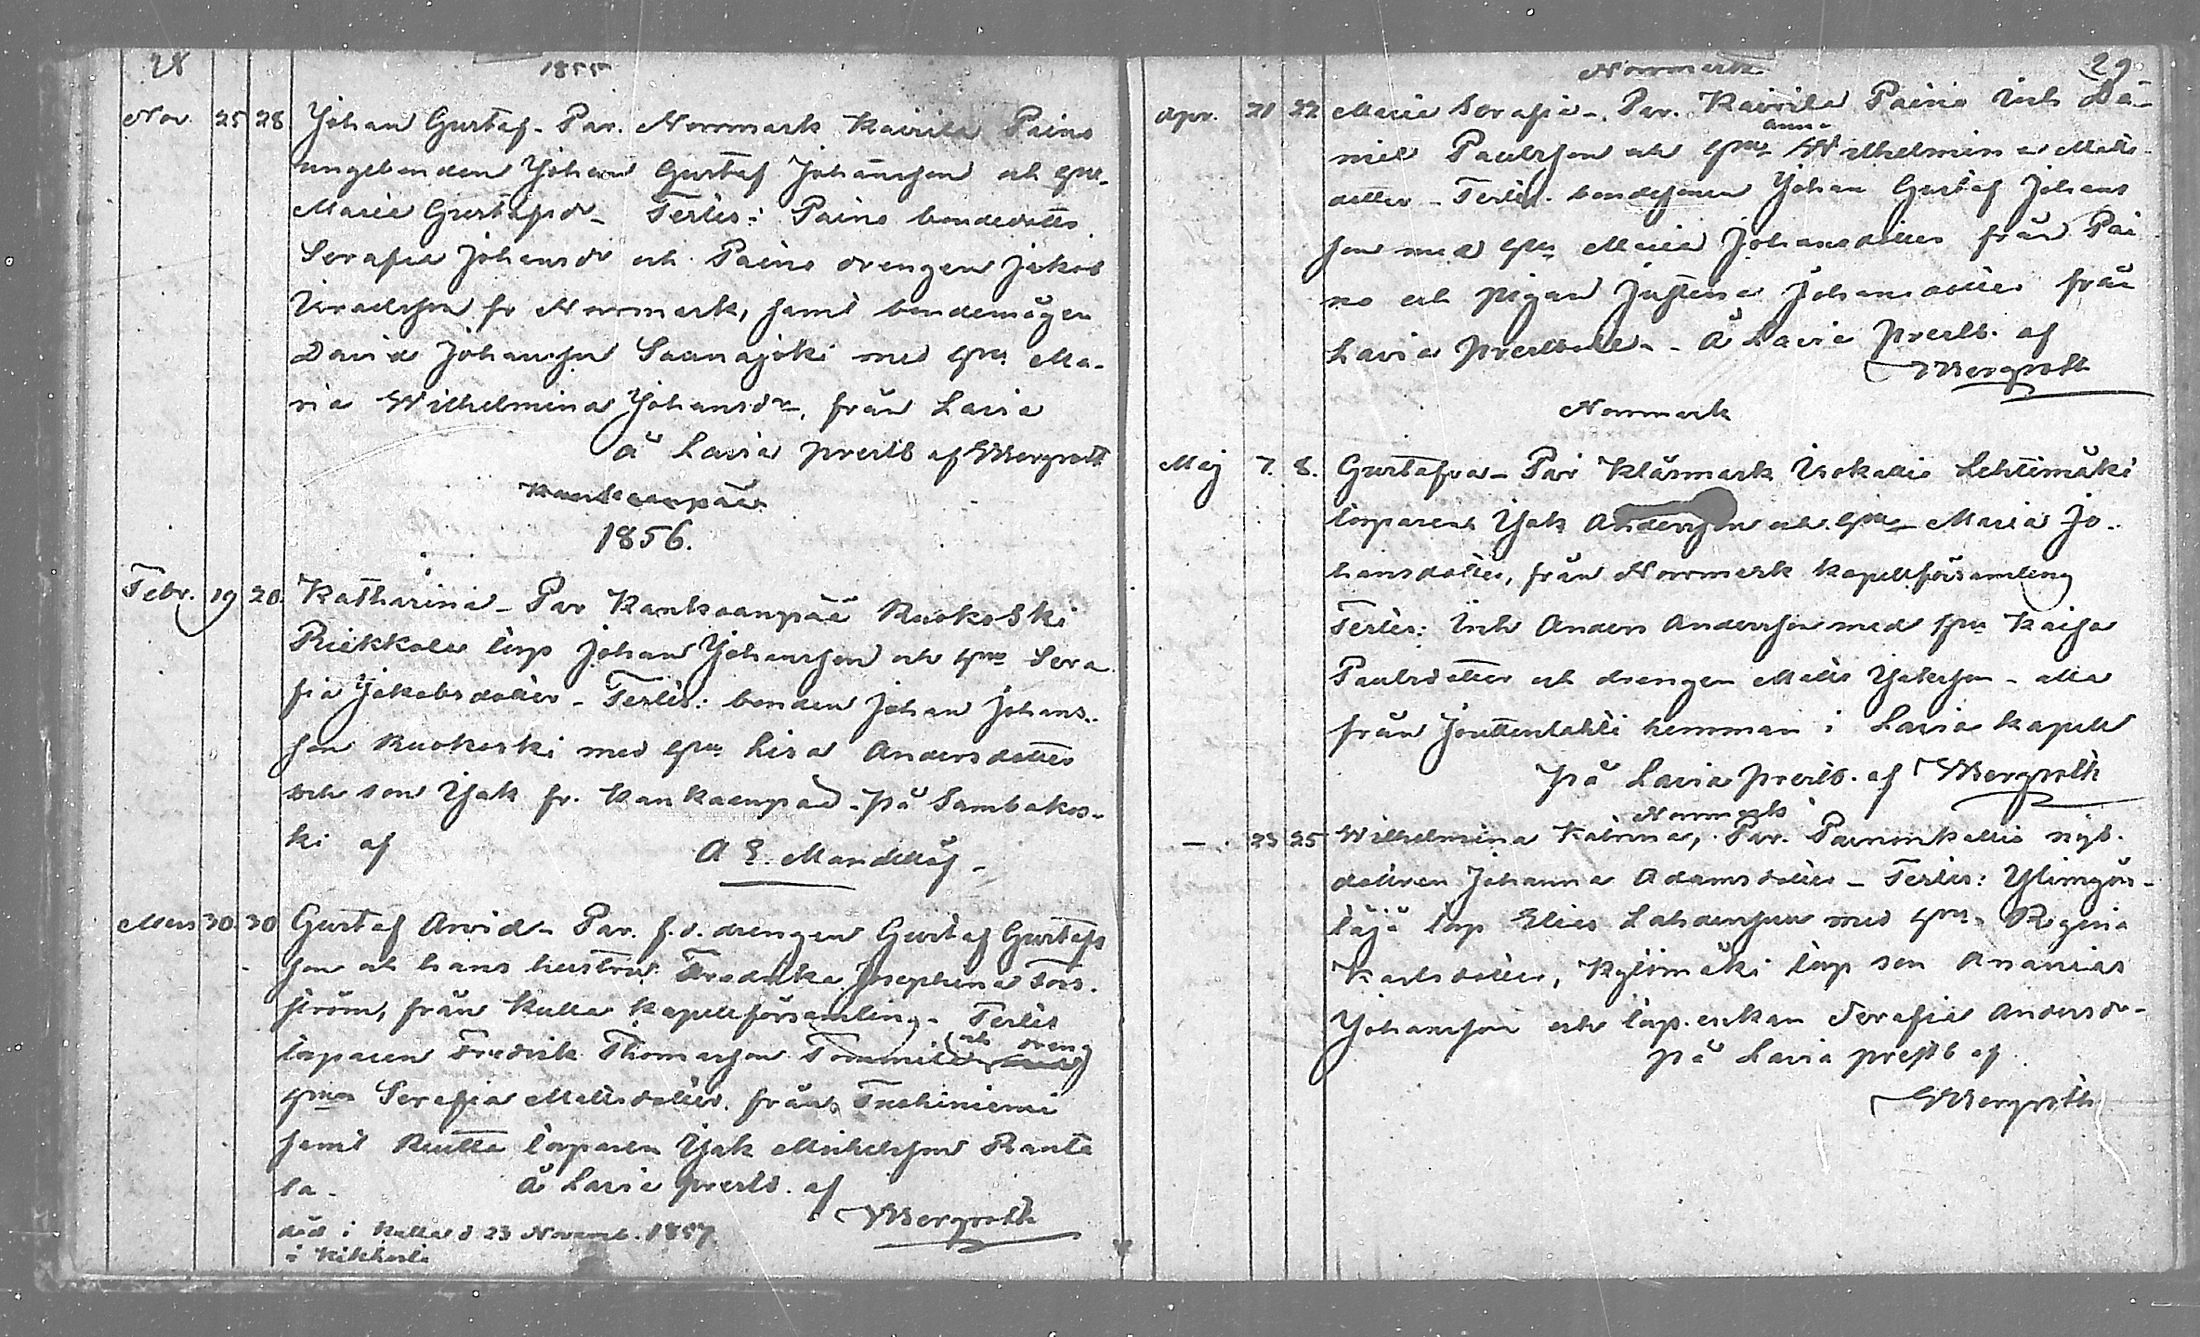 28
1855
Nov. 25 28 Johan Gustaf - Par. Norrmark Kairila Paino
ungebonden Johan Gustaf Johansson och hu.
Maria Gustafsdr - Testes: Paino bondedottr
Serafia Johansdr och Paino drengen Jakob
fr Norrmark, samt bondemågen
David Johansson Saarnijoki med hu Ma-
ria Wilhelmina Johansdr, från Lavia
å Lavia prestb af Bergroth
Kankaanpää
1856.
Febr. 19 20. Katharina - Par Kankaanpää Ruokoski
Riekkala torp Johan Johansson och hu Sera
fia Jakobsdotter - Testes: bonden Johan Johans-
son Ruokoski med hu Lisa Andersdotter
och son Isak fr. Kankaanpää - på Sambakos-
ki af A E. Mandellöf -
Mars 30 30 Gustaf Arvid - Par. f.d. drengen Gustaf Gustafs
son och hans hustru Fredrika Josephina Fors-
ström, från Kulla kapellförsamling - Testes
torparen Fredrik Thomasson Tommila och dreng
hu Serafia Mattsdotter från Tuohiniemi
samt Rutta torparen Isak Michelsson Ranta
la - å Lavia prestb. af
Bergroth
död i Kulla d 23 Novemb. 1857
i Kikkerla
Norrmark
29
Apr. 21 22 Maria Serafia - Par. Kairila Paino Inh Da-
niel Paulsson och hu Anna Wilhelmina Matts-
dotter - Testes. bondesonen Johan Gustaf Johans
son med hu Maria Johansdotter från Pai
no och pigan Justina Johansdotter från
Lavia prestbol - Å Lavia prestb. af
Bergroth
Norrmark
Maj 7. 8. Gustafva - Par Klåsmark Isokallio Lehtimäki
torparen Isak Andersson och hu - Maria Jo-
hansdotter, från Norrmark kapellförsamling
Testes: Inh Anders Andersson med hu Kaisa
Paulsdotter och drengen Matts Isaksson - alla
från Jouttenlahti hemman i Lavia kapell
på Lavia prestb. af Bergroth
Norrmark
- 23 25 Wilhelmina Katrina, Par. Painonkallio nyb.
dottren Johanna Adamsdotter - Testes:
torp Elias med hu - Regina
Karlsdotter, Kylimäki torp son Ananias
Johansson och torp.enkan Serafia Andersdr -
på Lavia prestb af
Bergroth